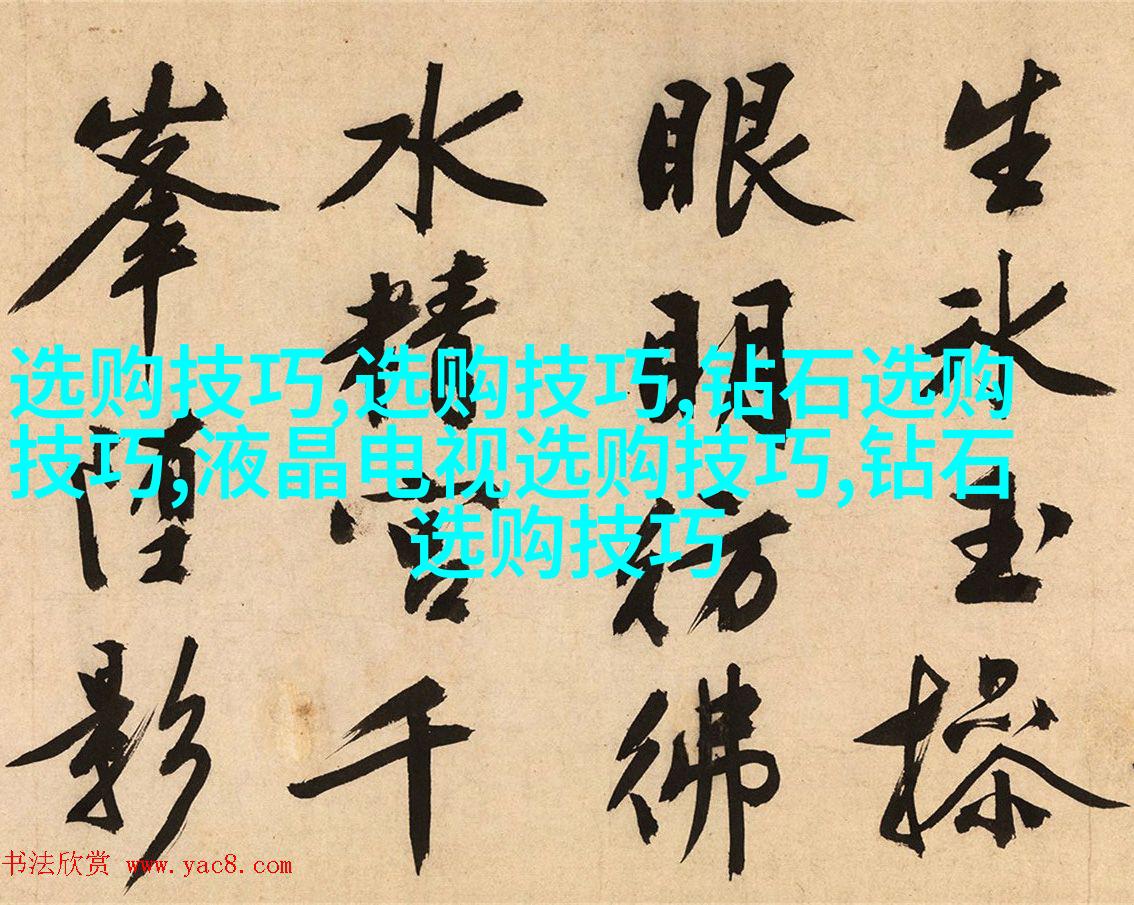 生氷玉操
眼明彷彿
水精宮千
峯墮影
选购技巧,选购技巧,钻石选购
技巧,液晶电视选购技巧,钻石
选购技巧
书法欣赏 www.yac8.com